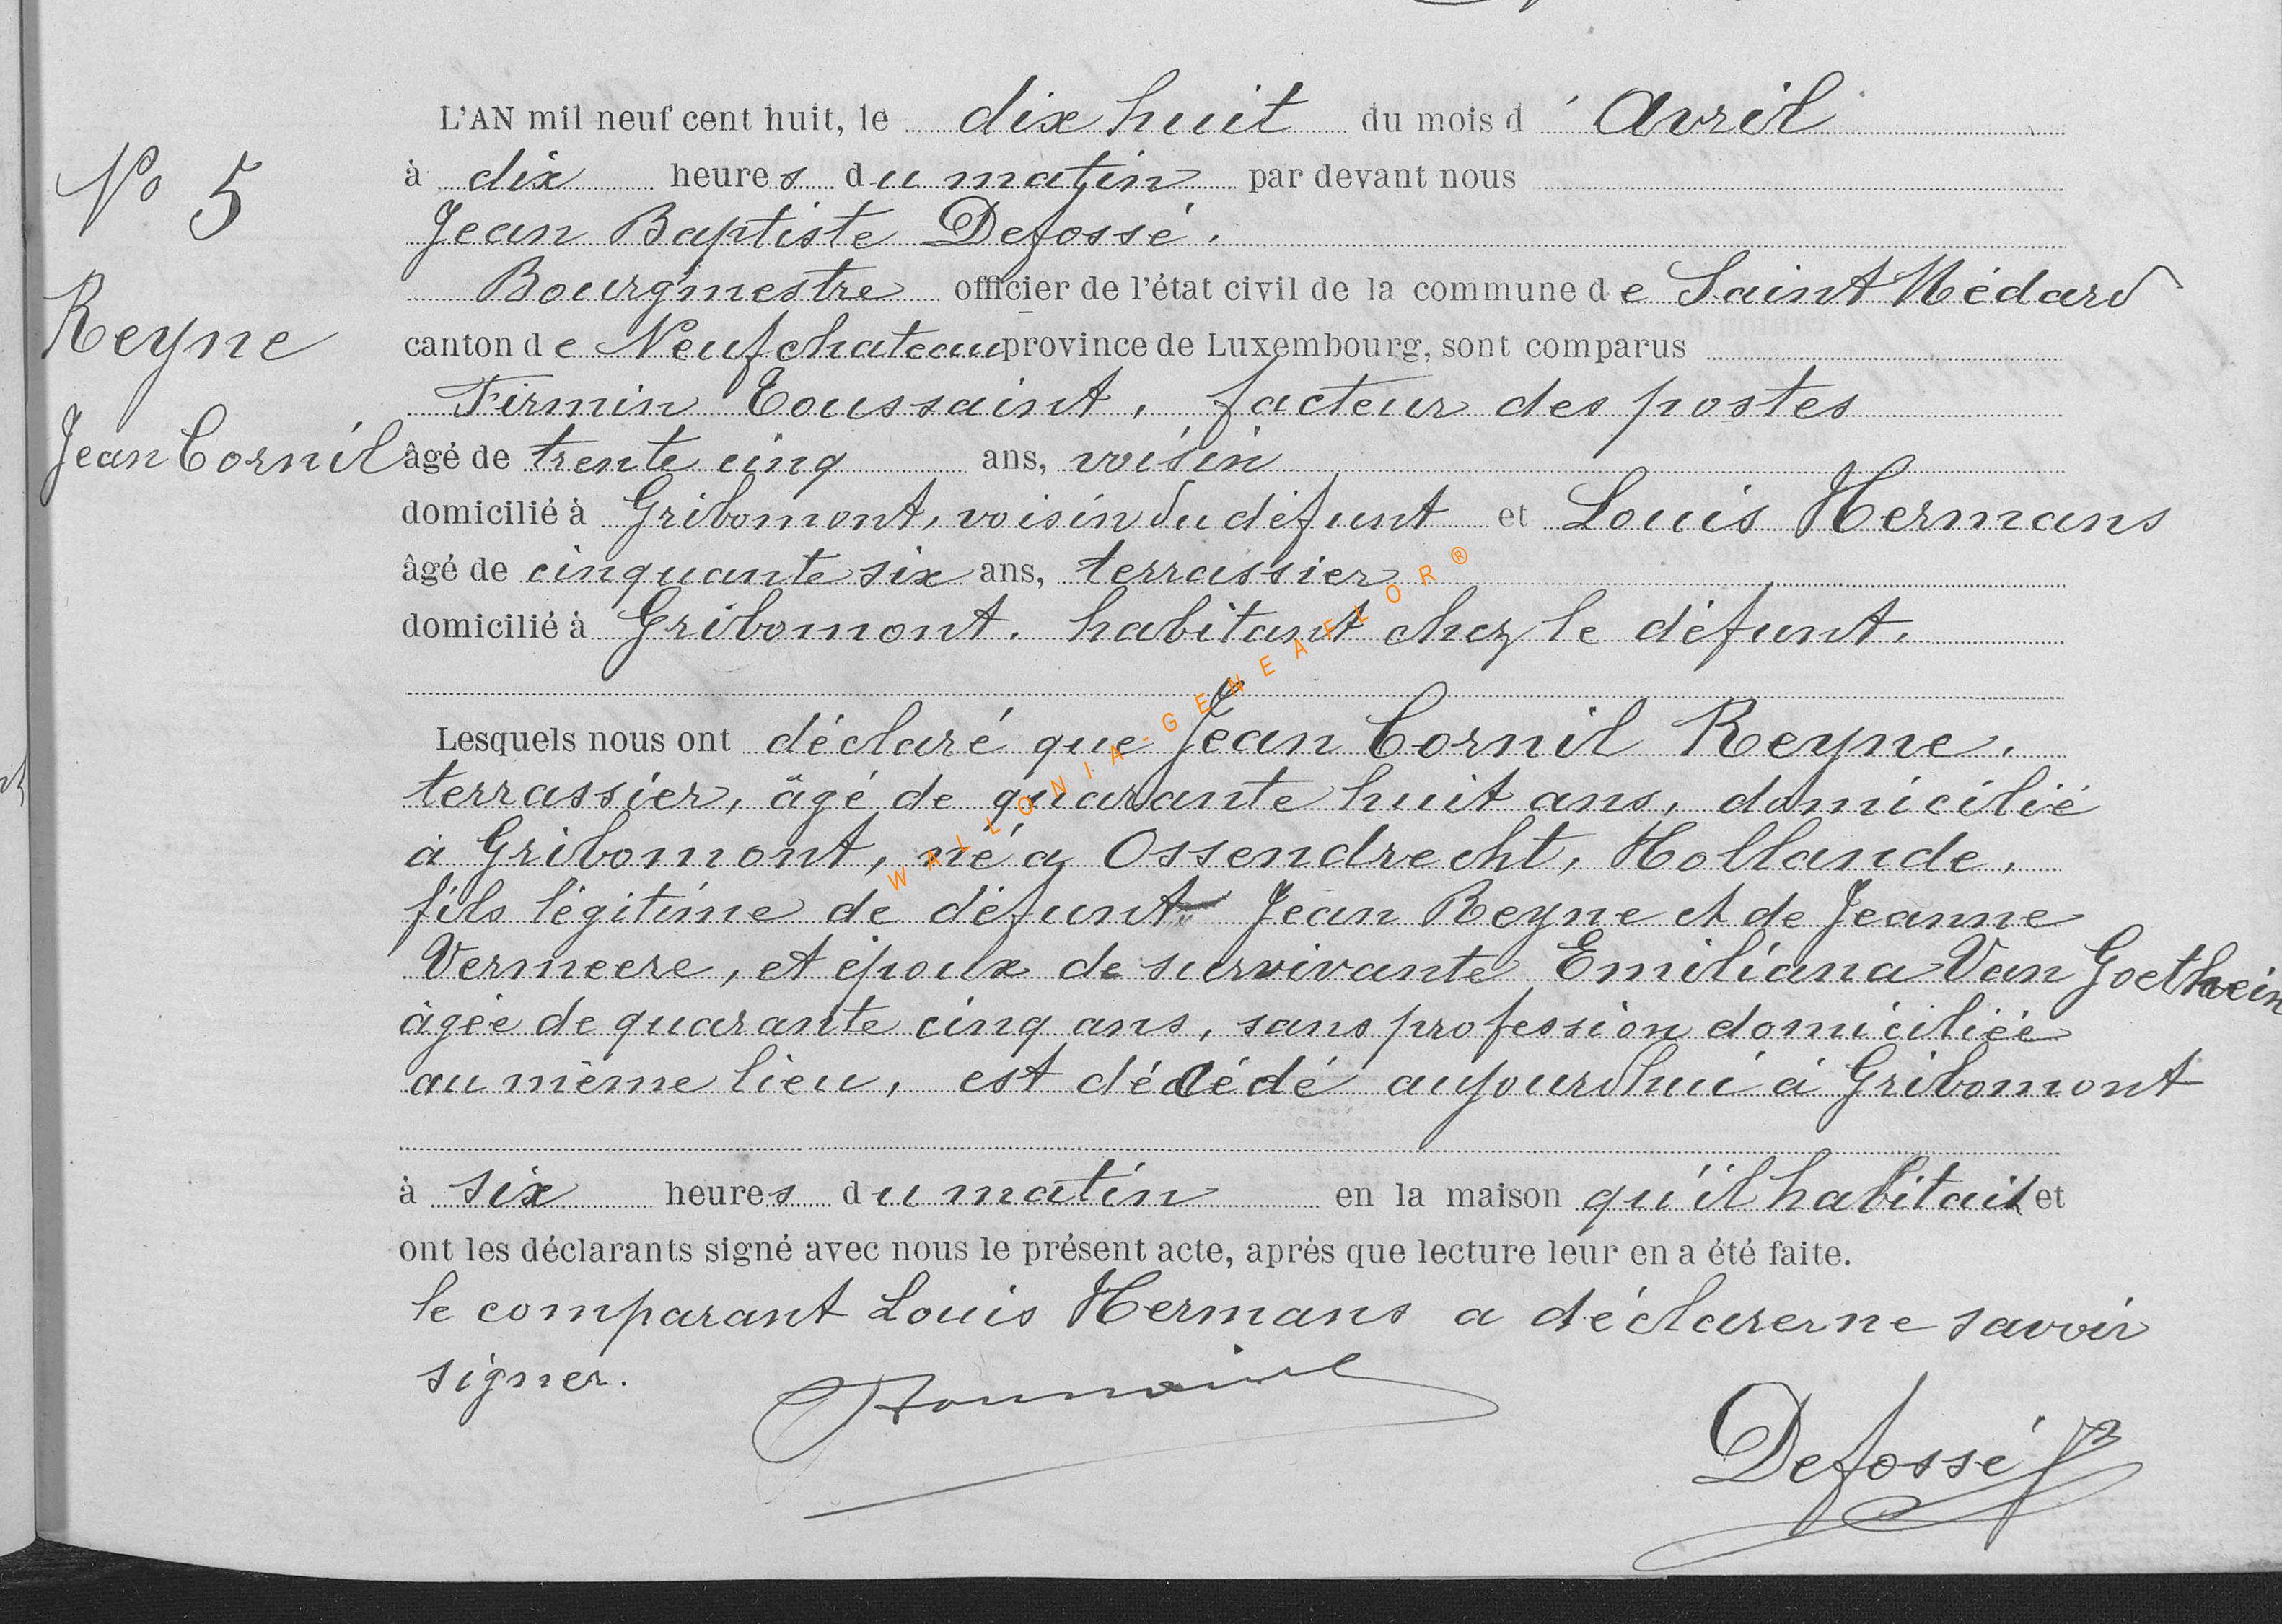 L'AN mil neuf cent huit, le dix huit du mois d' Avril
No 5
à dix heures du matin par devant nous
Jean Baptiste Defossé.
Bourgmestre officier de l'état civil de la commune de Saint Médard
Reyne
canton de Neufchateau province de Luxembourg, sont comparus
Firmin Toussaint, facteur des postes
Jean Cornil
âgé de trente cinq ans, voisin
domicilié à Gribomont, voisin du défunt et Louis Hermans
âgé de cinquante six ans, terrassier
domicilié à Gribomont. habitant chez le défunt.
Lesquels nous ont déclaré que Jean Cornil Reyne.
terrassier, âgé de quarante huit ans, domicilié
à Gribomont, né à Ossendrecht, Hollande,
fils légitime de défunt Jean Reyne et de Jeanne
Vermeere, et époux de survivante Emiliana Van Goethein
âgée de quarante cinq ans, sans profession domiciliée
au même lieu, est décédé aujourdhui à Gribomont
à six heures du matin en la maison qu'il habitait et
ont les déclarants signé avec nous le présent acte, après que lecture leur en a été faite.
le comparant Louis Hermans a déclarer ne savoir
signer.
Toussaint
Defossé JB
WALLONIA-GENEAFLOR®